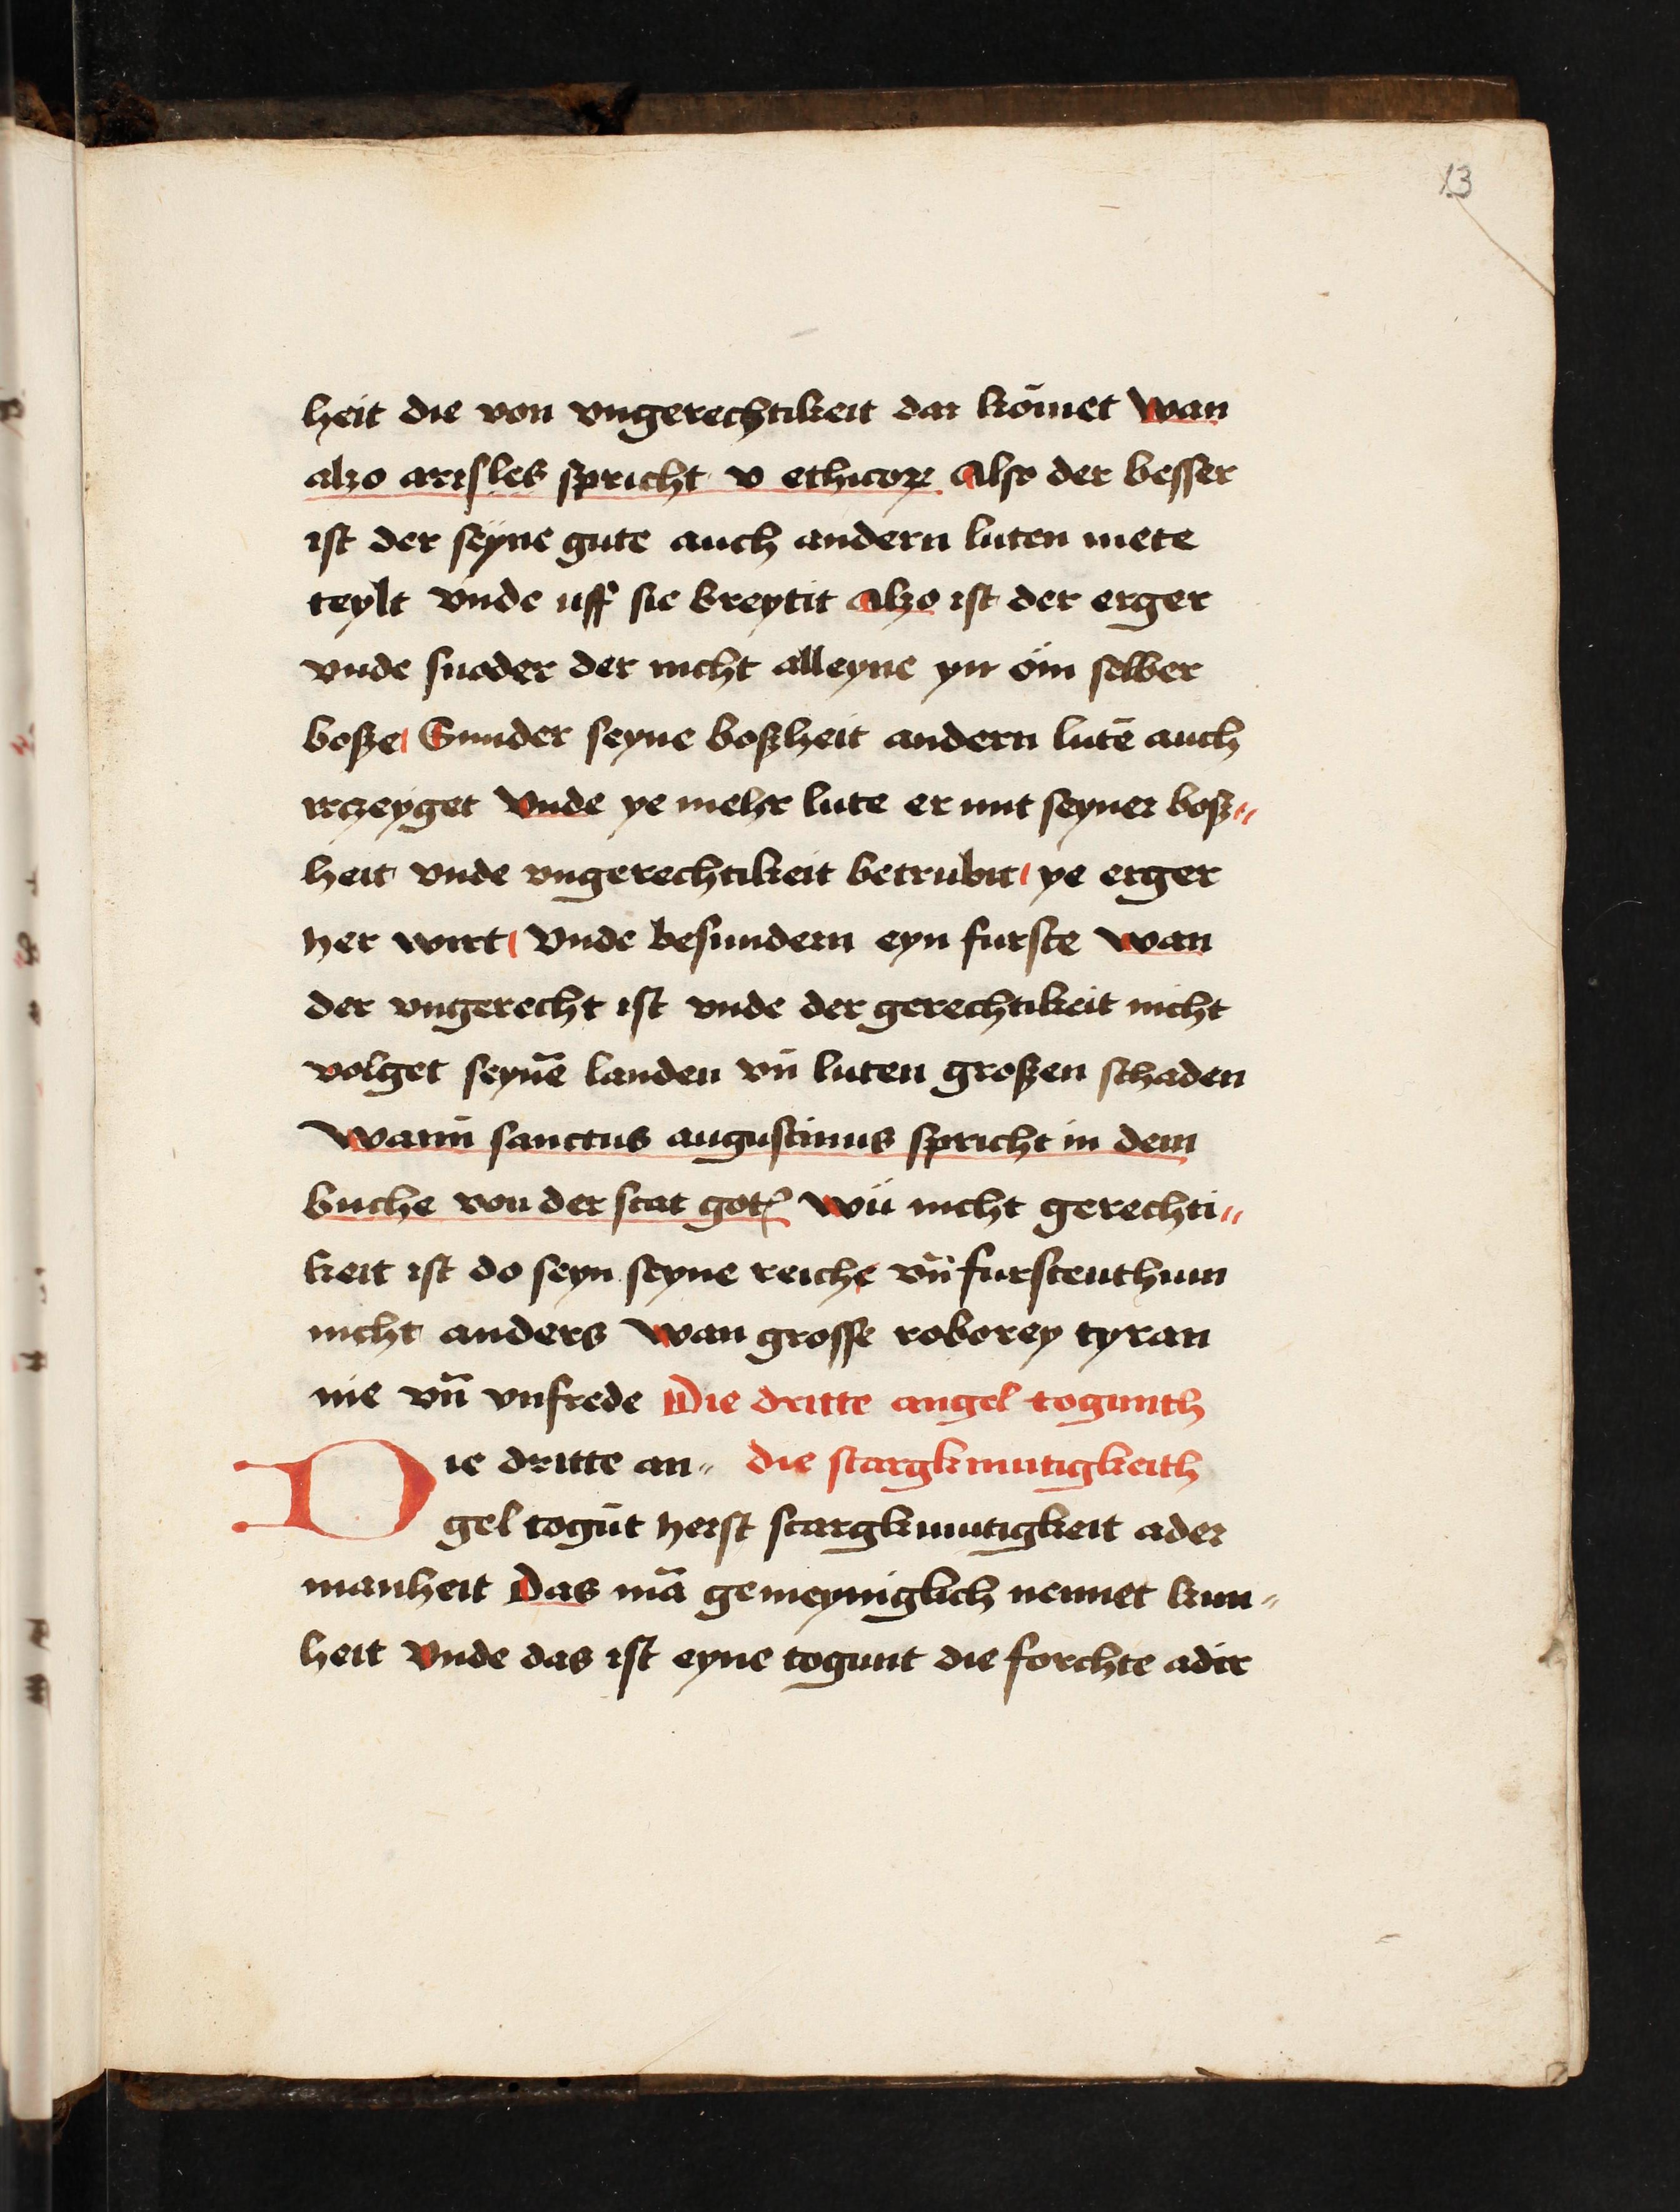 13
heit die von vngerechtikeit dar kōmet wan
alzo arisłes spricht v ethicoꝝ Also der besser
ist der seyne gute auch andern luten mete
teylt vnde uff sie breytit alzo ist der erger
vnde snoder der nicht alleyne yn öm selber
boße Sunder seyne boßheit andern lutē auch
irczeyget vnde ye mehr lute er mit seyner boß"
heit vnde vngerechtikeit betrubit ye erger
her wirt vnde besundern eyn furste wan
der vngerecht ist vnde der gerechtikeit nicht
volget seynē landen vn̄ luten großen schaden
wann sanctus augustinus spricht in dem
buche von der stat gotꝭ wū nicht gerechti"
keit ist do seyn seyne reiche vn̄ furstenthum
nicht anders wan grosse roborey tyran
nie vn̄ vnfrede Die dritte angel togunth
Die dritte an" die stargkmutigkeith
gel togūt heist stargkmutigkeit ader
manheit Das mā gemeyniglich nennet kun"
heit vnde das ist eyne togunt die forchte adir